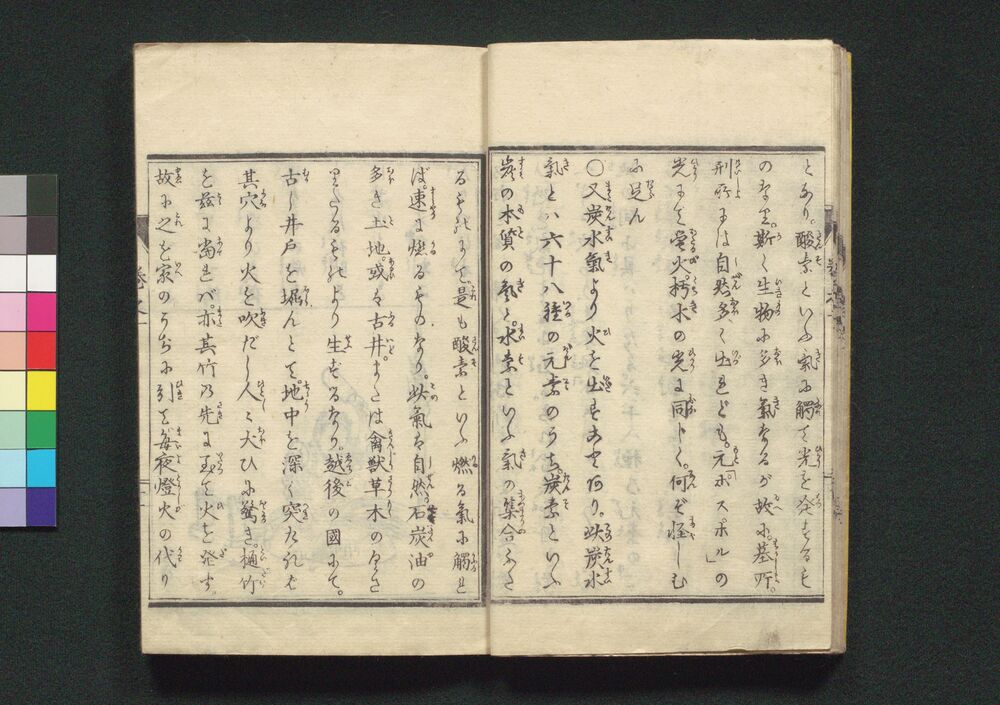 とあり。酸素といふ氣に觸て光を發するも
のなり。斯く生物に多き氣なるが故に。墓所。
刑所には自然多く出れども。元ポスポル」の
光にて螢火。朽木の光に同じく。何ぞ怪しむ
に足ん
〇又炭水氣より火を出すことあり。此炭水
氣とハ六十八種の元素のうち。炭素といふ
炭の本質の氣と。水素といふ氣の集合ふた
るものにて是も酸素といふ燃る氣に觸れ
ば。速に燃るものなり。此氣は自然石炭油の
多き土地。或は古井。または禽獸草木のくさ
りたるものより生ずるなり。越後の國にて。
古し井戸を堀んとて。地中を深く突たれば
其穴より火を吹だし人々大ひに驚き。樋竹
を茲に當れバ。亦其竹乃先に至て火を発す。
故に之を家のうちに引て毎夜燈火の代り